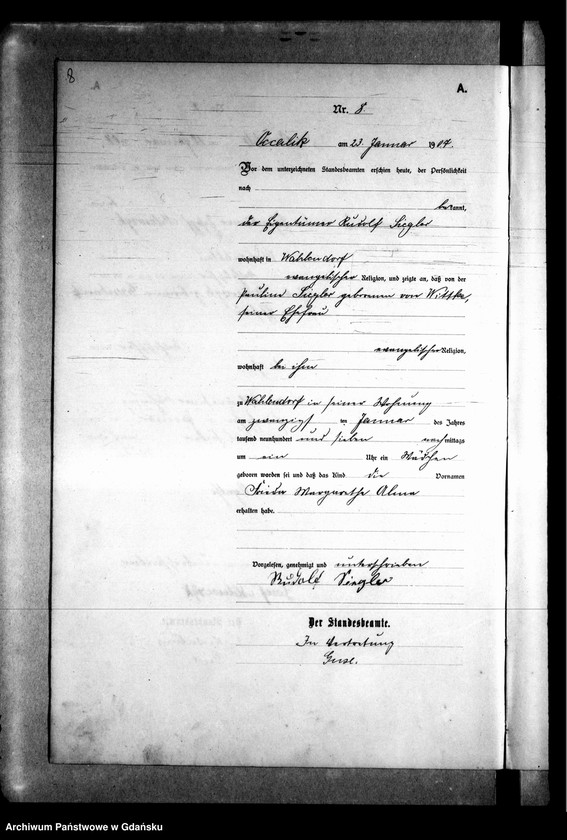 8
A.
Nr. 8.
am 23 Januar 1907.
Vor dem unterzeichneten Standesbeamten erschien heute, der Persönlichkeit
nach
bekannt,
der Eigentümer Rudolf Siegler
wohnhaft in Wahlendorf
evangelischer Religion, und zeigte an, daß von der
Pauline Siegler geborenen von Wittke,
seiner Ehefrau
evangelischer Religion,
wohnhaft bei ihm
zu Wahlendorf in seiner Wohnung
am zwanzigsten Januar des Jahres
tausend neunhundert und sieben nachmittags
um ein Uhr ein Mädchen
geboren worden sei und daß das Kind die Vornamen
Frida Margarethe Alma
erhalten habe.
Vorgelesen, genehmigt und unterschrieben
Rudolf Siegler
Der Standesbeamte.
In Vertretung
Archiwum Państwowe w Gdańsku